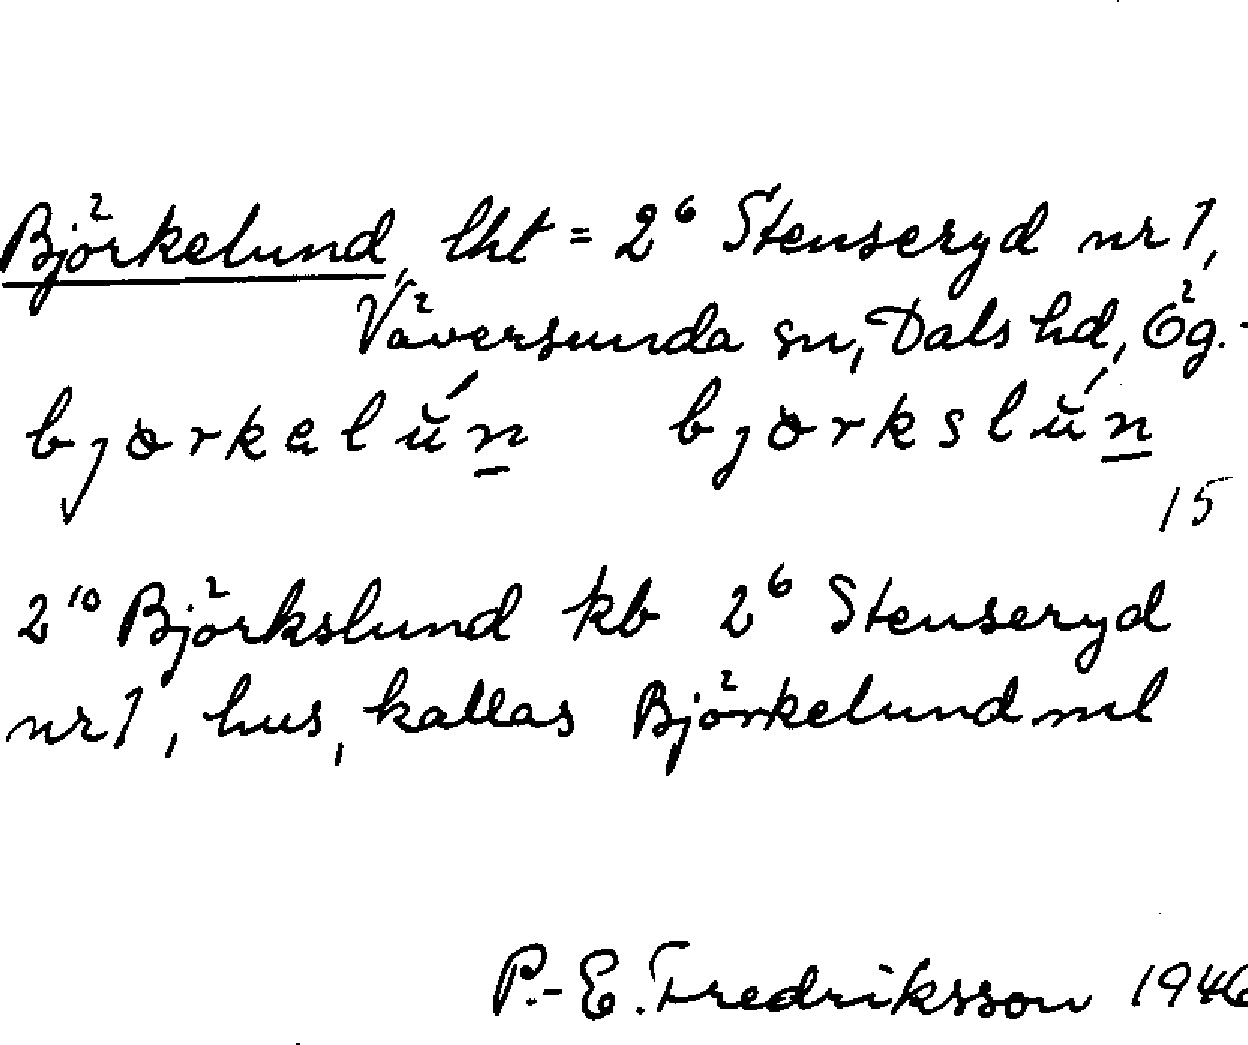 Björkelund, lht = 2⁶ Stenseryd nr 1,
Väversunda sn, Dals hd, Ög.-
bjɵrkəlŭ́n̲ bjɵrkslŭ́n̲
15
2¹⁰ Björkslund kb 2⁶ Stenseryd
nr 1, hus, kallas Björkelund ml
P.-E. Fredriksson 1946